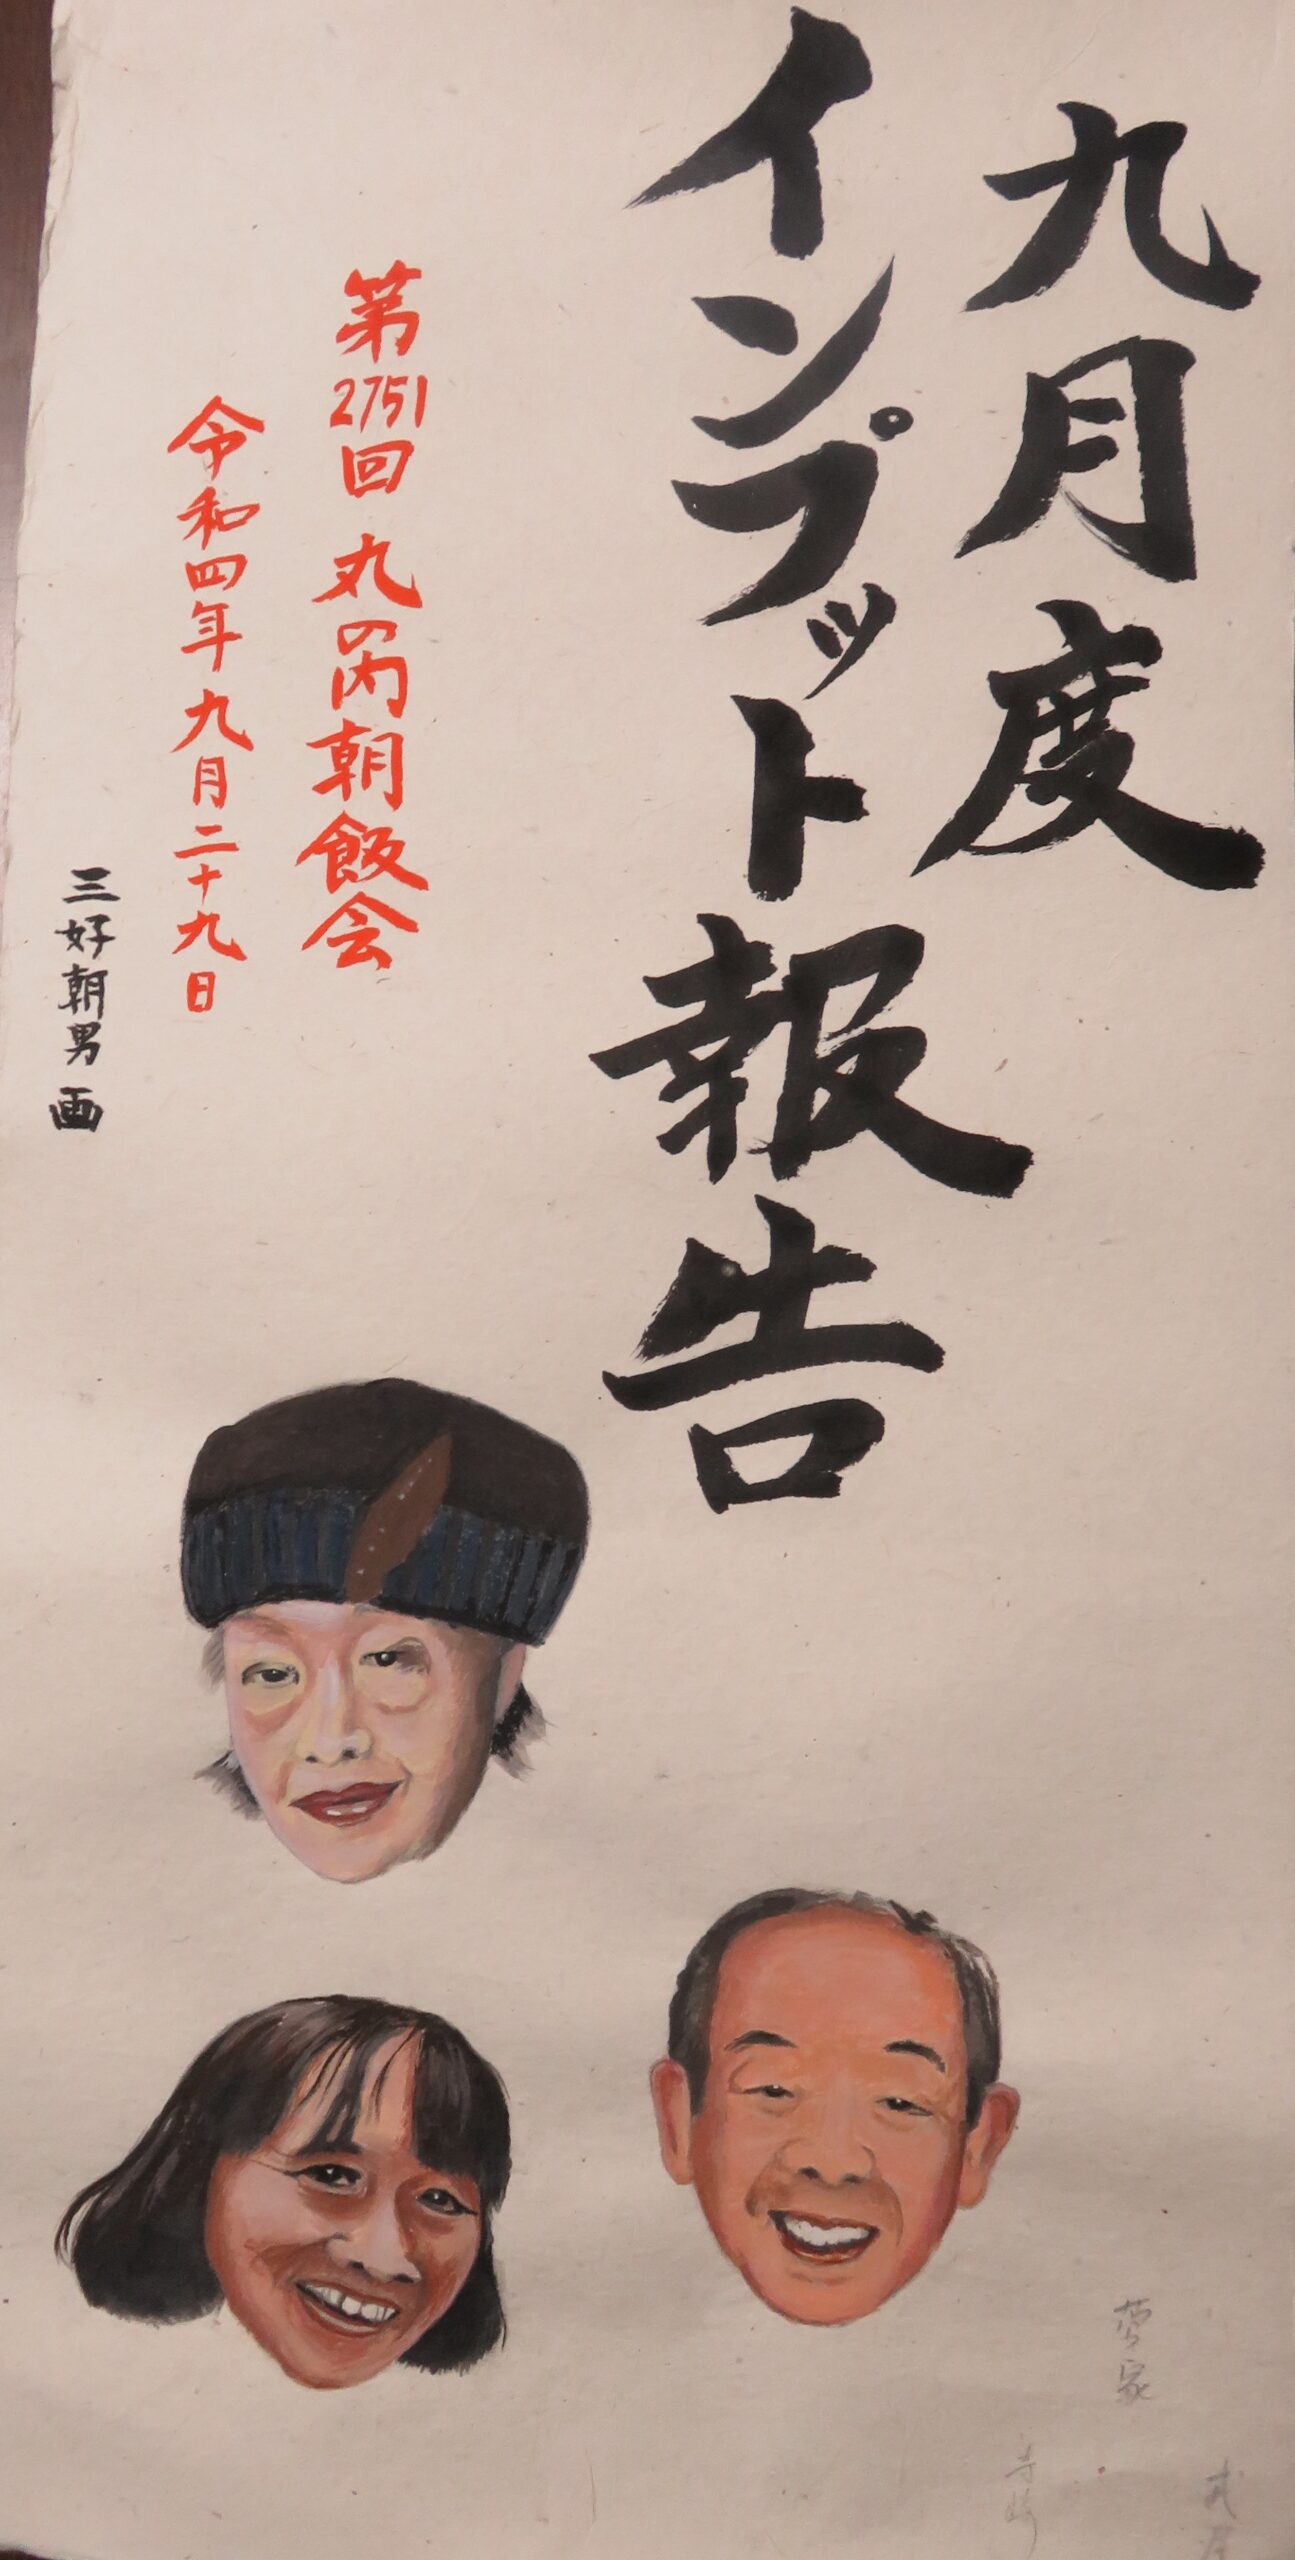 九月度
インプット報告
第2751回 丸の内朝飯会
令和四年九月二十九日
三好朝男 画